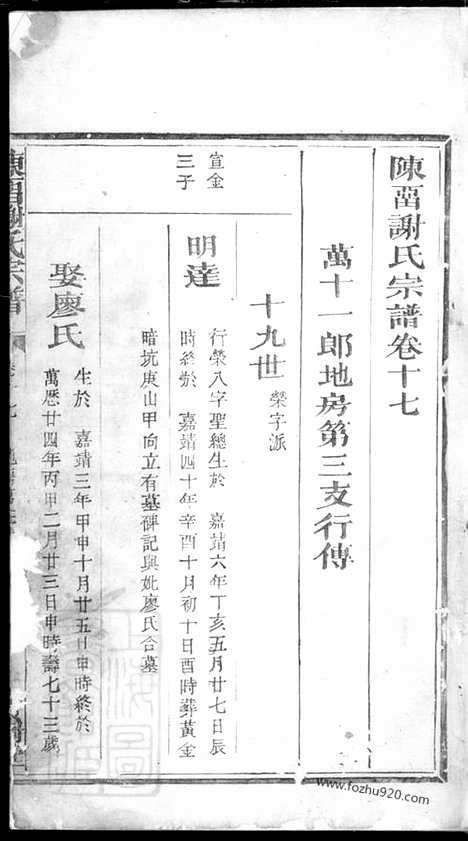 陳畱謝氏宗譜卷十七
萬十一郎地房第三支行傳
十九世 榮字派
宣金
三子
明達
行榮八字聖總生於 嘉靖六年丁亥五月廿七日辰
時終於 嘉靖四十年辛酉十月初十日酉時葬黃金
暗坑庚山甲向立有墓碑記與妣廖氏合墓
娶廖氏
生於 嘉靖三年甲申十月廿五日申時終於
萬歷廿四年丙甲二月廿三日申時壽七十三歲
陳畱謝氏宗譜
www.fozhu920.com